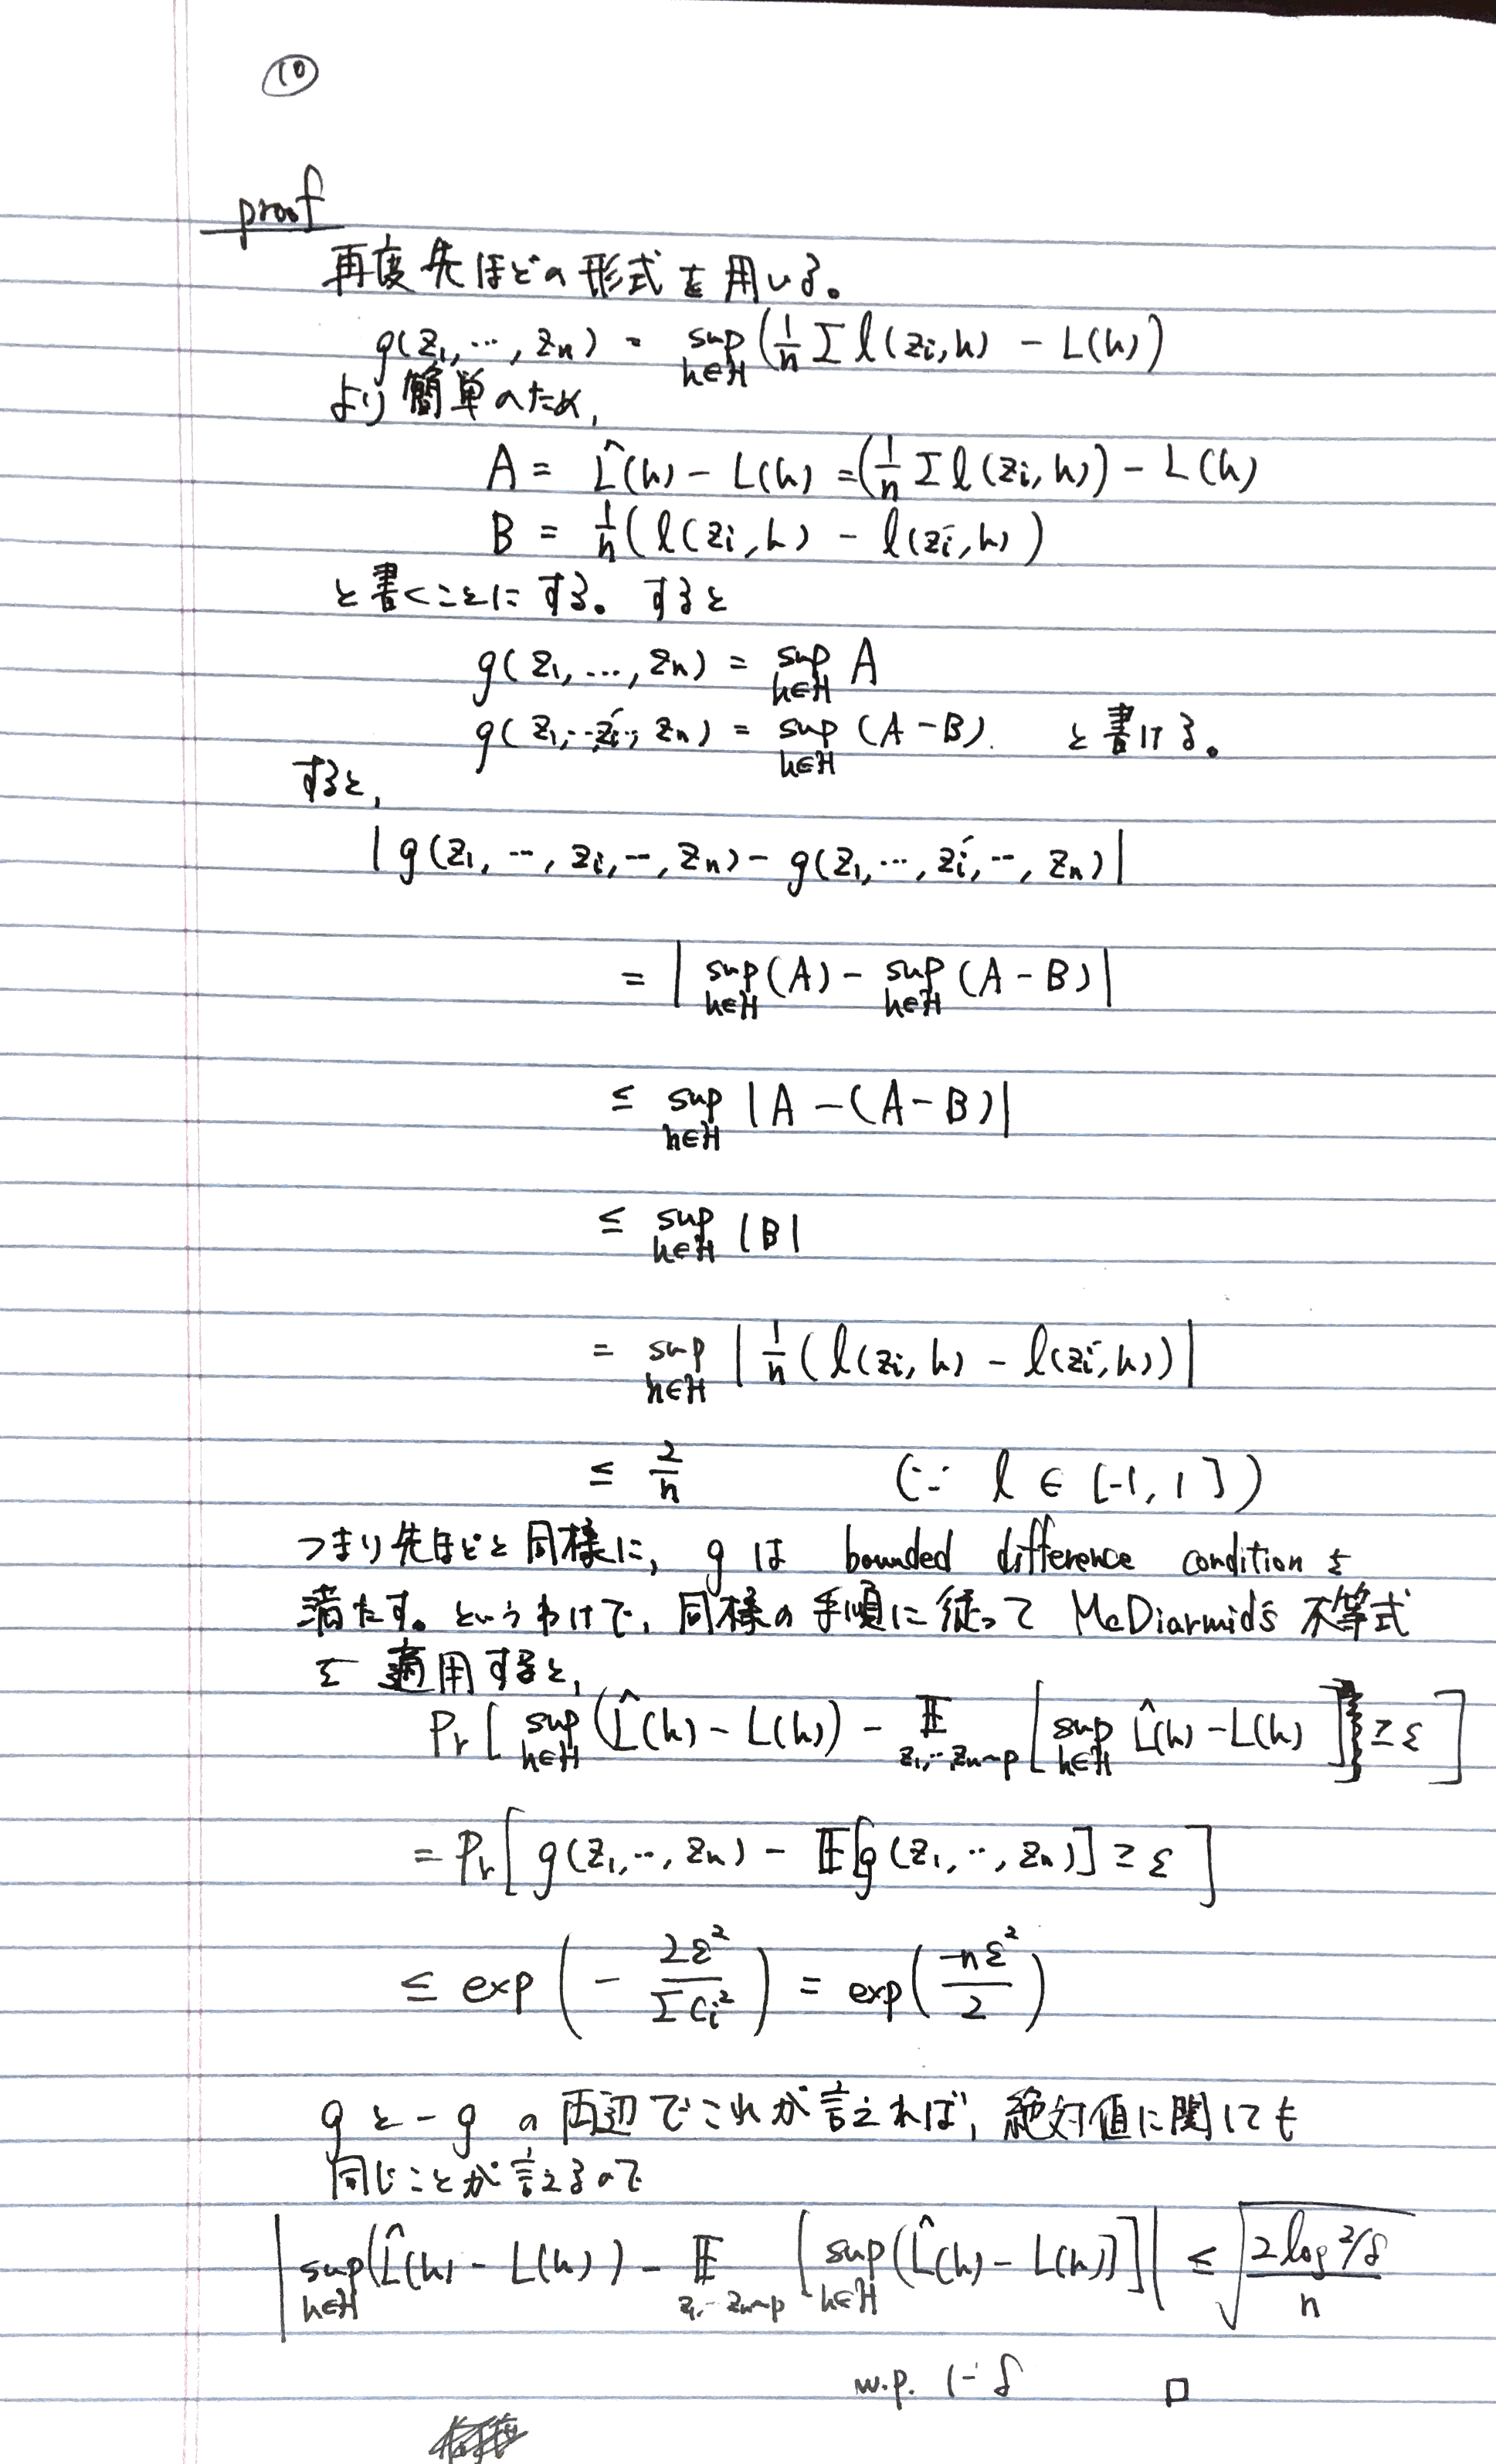 ⑩
proof
再度先ほどの形式を用いる。
g(z₁, ⋯, zₙ) = sup_{h∈H} (1/n Σ l(zᵢ, h) − L(h))
より簡単のため,
A = L̂(h) − L(h) = (1/n Σ l(zᵢ, h)) − L(h)
B = 1/n (l(zᵢ, h) − l(zᵢ′, h))
と書くことにする。すると
g(z₁, …, zₙ) = sup_{h∈H} A
g(z₁, ⋯, zᵢ′, ⋯, zₙ) = sup_{h∈H} (A − B). と書ける。
すると,
| g(z₁, ⋯, zᵢ, ⋯, zₙ) − g(z₁, ⋯, zᵢ′, ⋯, zₙ) |
= | sup_{h∈H} (A) − sup_{h∈H} (A − B) |
≤ sup_{h∈H} | A − (A − B) |
≤ sup_{h∈H} | B |
= sup_{h∈H} | 1/n (l(zᵢ, h) − l(zᵢ′, h)) |
≤ 2/n (∵ l ∈ [-1, 1])
つまり先ほどと同様に, g は bounded difference condition を
満たす。というわけで, 同様の手順に従って McDiarmid's 不等式
を適用すると,
Pr [ sup_{h∈H} (L̂(h) − L(h)) − 𝔼_{z₁, ⋯, zₙ∼p} [ sup_{h∈H} L̂(h) − L(h) ] ≥ ε ]
= Pr [ g(z₁, ⋯, zₙ) − 𝔼[g(z₁, ⋯, zₙ)] ≥ ε ]
≤ exp ( − 2ε² / Σ cᵢ² ) = exp ( −nε² / 2 )
g と −g の両辺でこれが言えれば, 絶対値に関しても
同じことが言えるので
| sup_{h∈H} (L̂(h) − L(h)) − 𝔼_{z₁, ⋯ zₙ∼p} [ sup_{h∈H} (L̂(h) − L(h)) ] | ≤ √(2 log 2/δ / n)
w.p. 1 − δ □